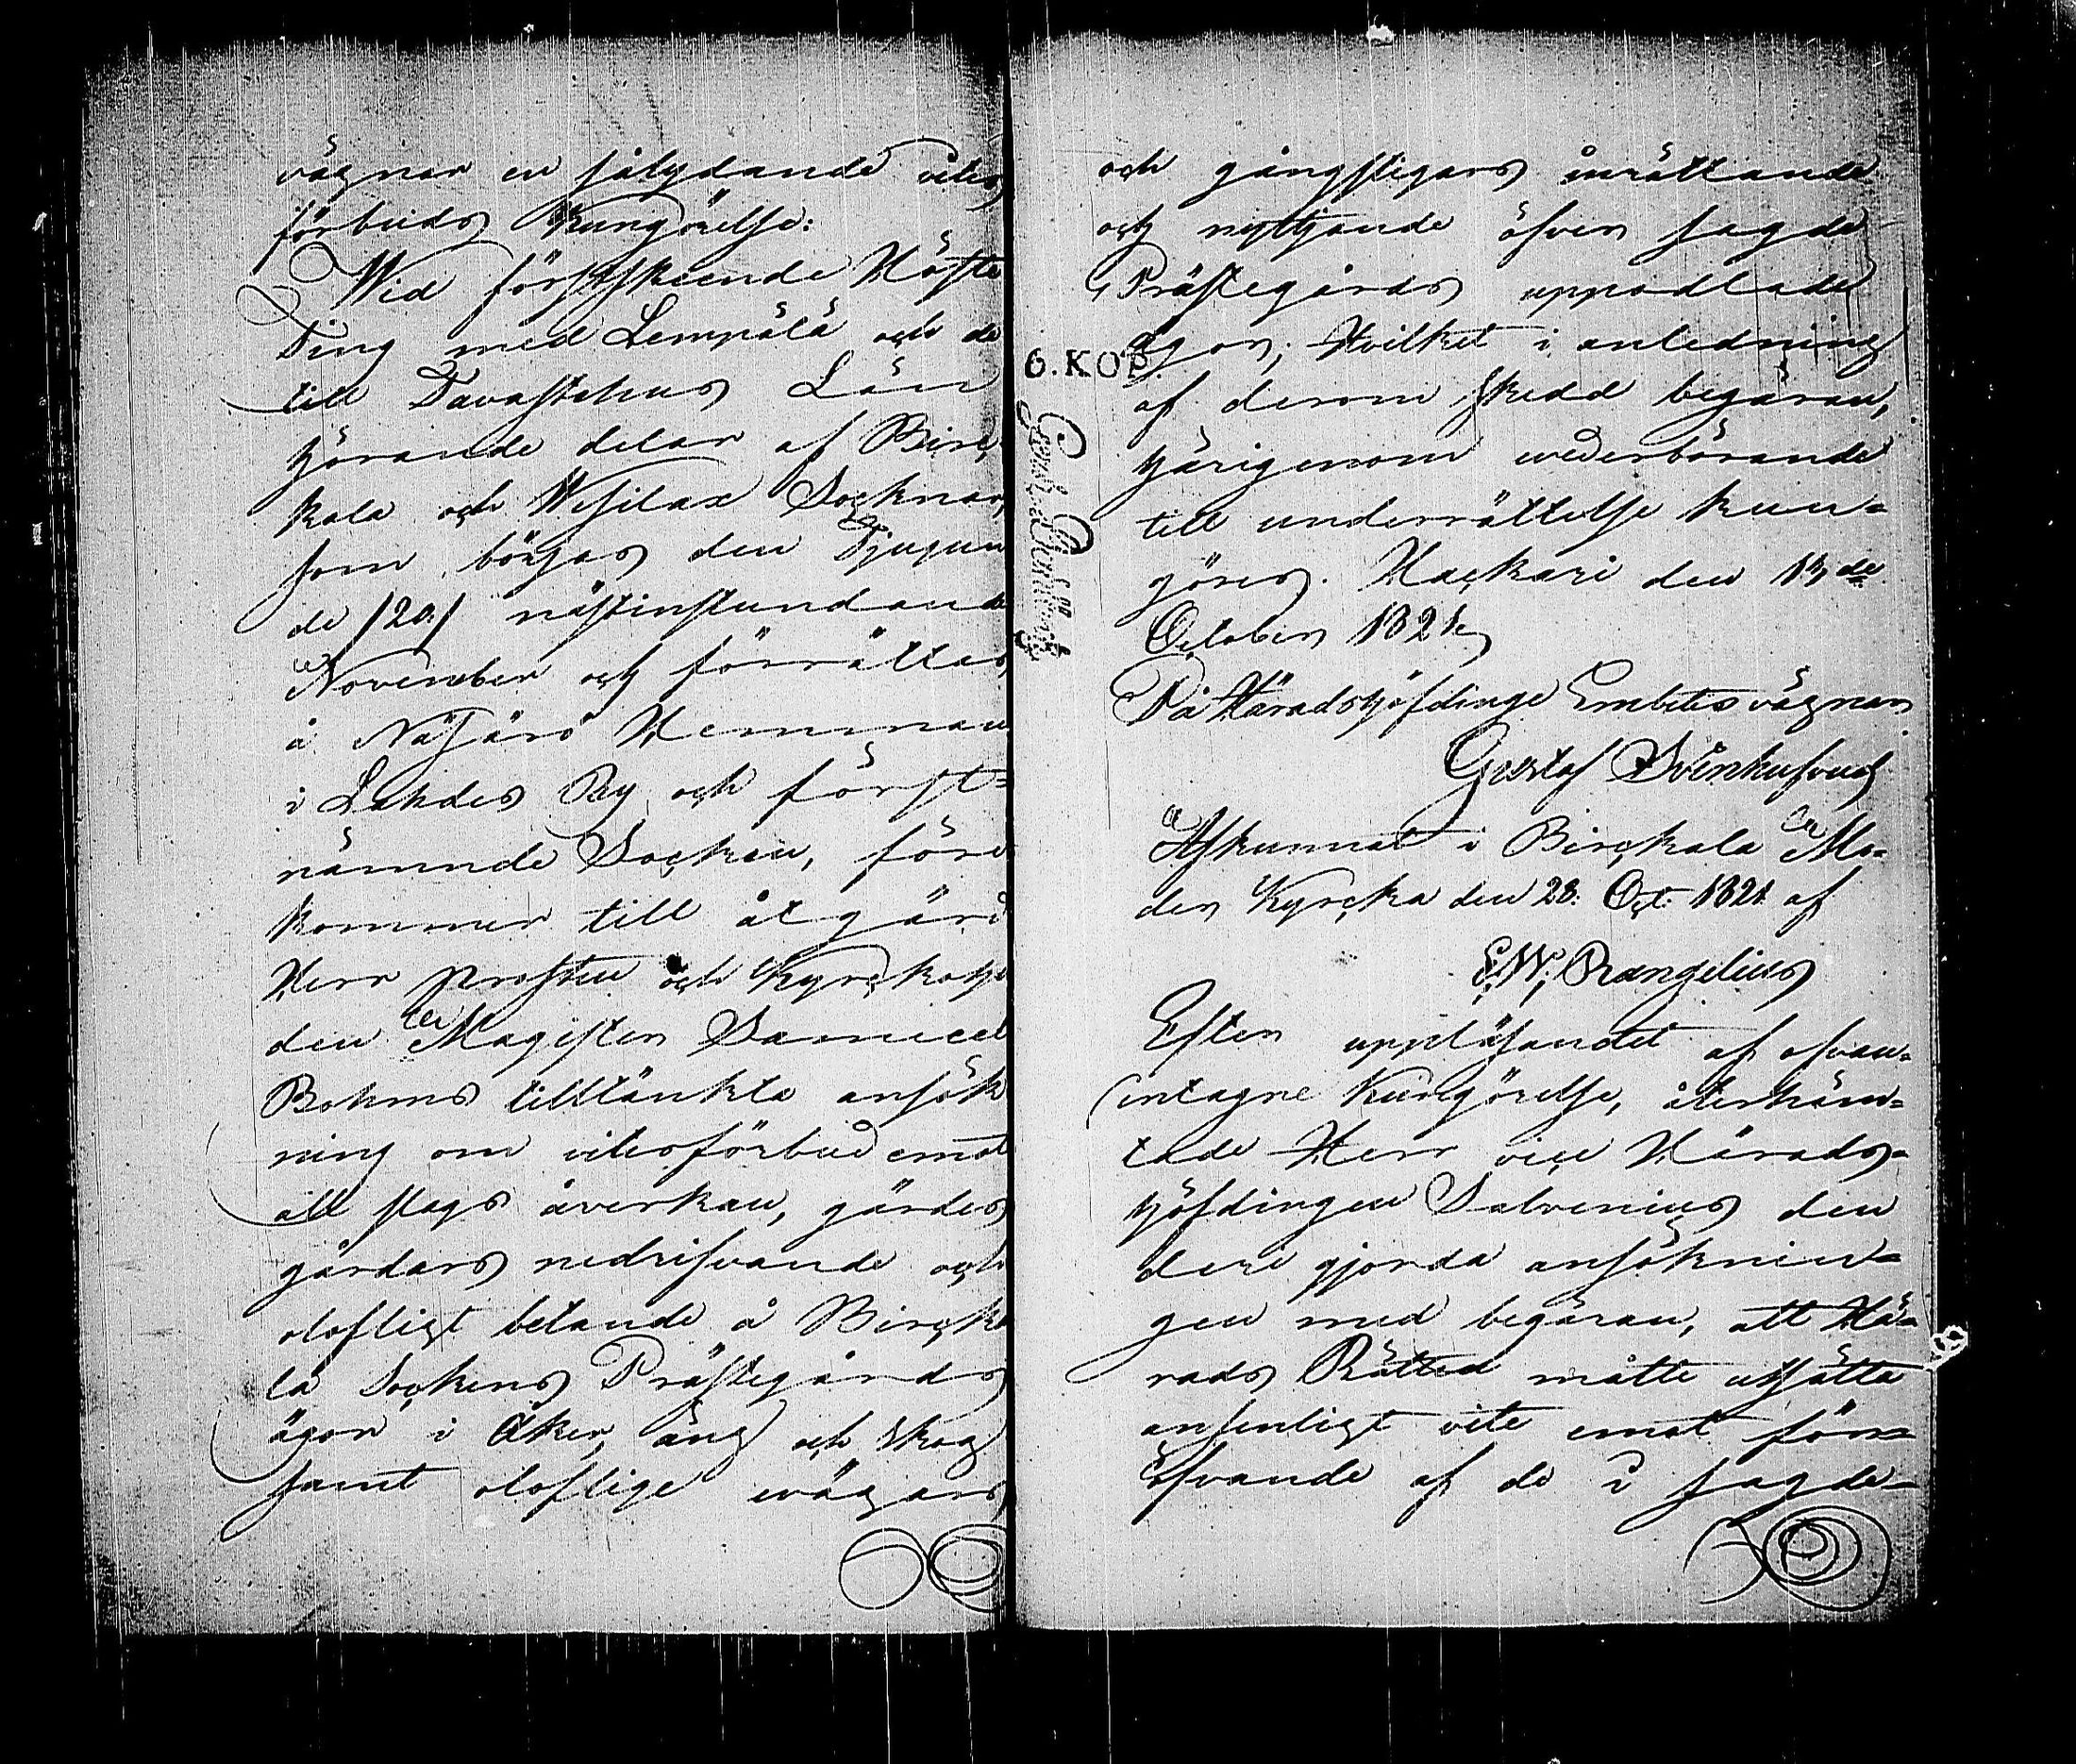 vägnar en sålydande vites
förbuds Kungörelse:
Wid förstskeende Höste
Ting med Lempälä och de
till Tavastehus Län
hörande delar af Birc
kala och Wesilax Socknar,
som börjas den Tjugun
de /20/ nästinstundande
November och förrättas
å Näjärö Hemman
i Lahdes By och först-
nämnde Socken, före
kommer till åtgärd
Herr Prosten och Kyrckoher
den Magister Samuel
Bohms tilltänkta ansök
ning om vitesförbud emot
all slags åverkan, gärdes
gårdars nedrifvande och
olofligt betande å Bircka
la Sockens Prästegårds
ägor i åker, äng och skog
samt oloflige wägars
och gångstigars inrättande
och nyttjande öfver sagde
Prästegårds uppodlade
ägor; Hvilket i anledning
6. KOP.
af derom skedd begäran,
härigenom wederbörande
till underrättelse kun-
göres. Hackari den 13de
October 1821.
På Häradshöfdinge Embetes vägnar
Gustaf Svinhufvud
Afkunnat i Birckala Mo-
der Kyrcka den 28: Oct: 1821 af
E. W. Rangelius
Efter uppläsandet af ofvan-
intagne Kungörelse, återhäm-
tade Herr vice Härads-
höfdingen Salvenius den
deri gjorda ansöknin-
gen med begäran, att Hä-
rads Rätten måtte utsätta
ansenligt vite emot för-
öfvande af de i sagde